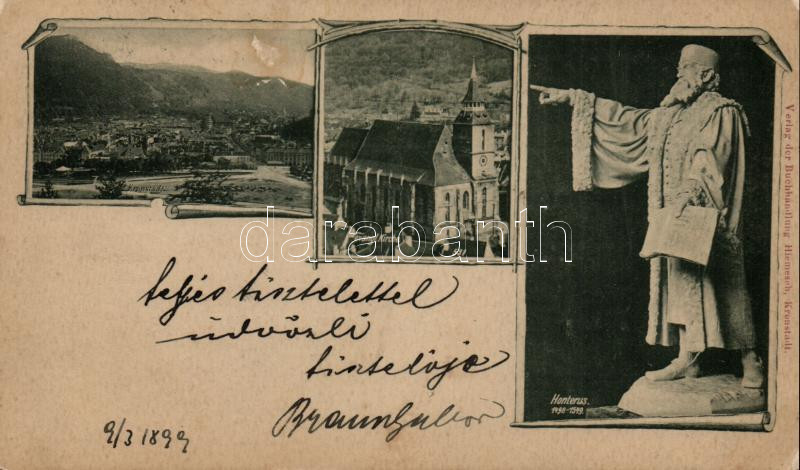 Kronstadt.
darabanth
Honterus.
1498-1549.
Verlag der Buchhandlung Hiemesch, Kronstadt.
teljes tisztelettel
üdvözli
tisztelője
Braun Gábor
9/3 1899